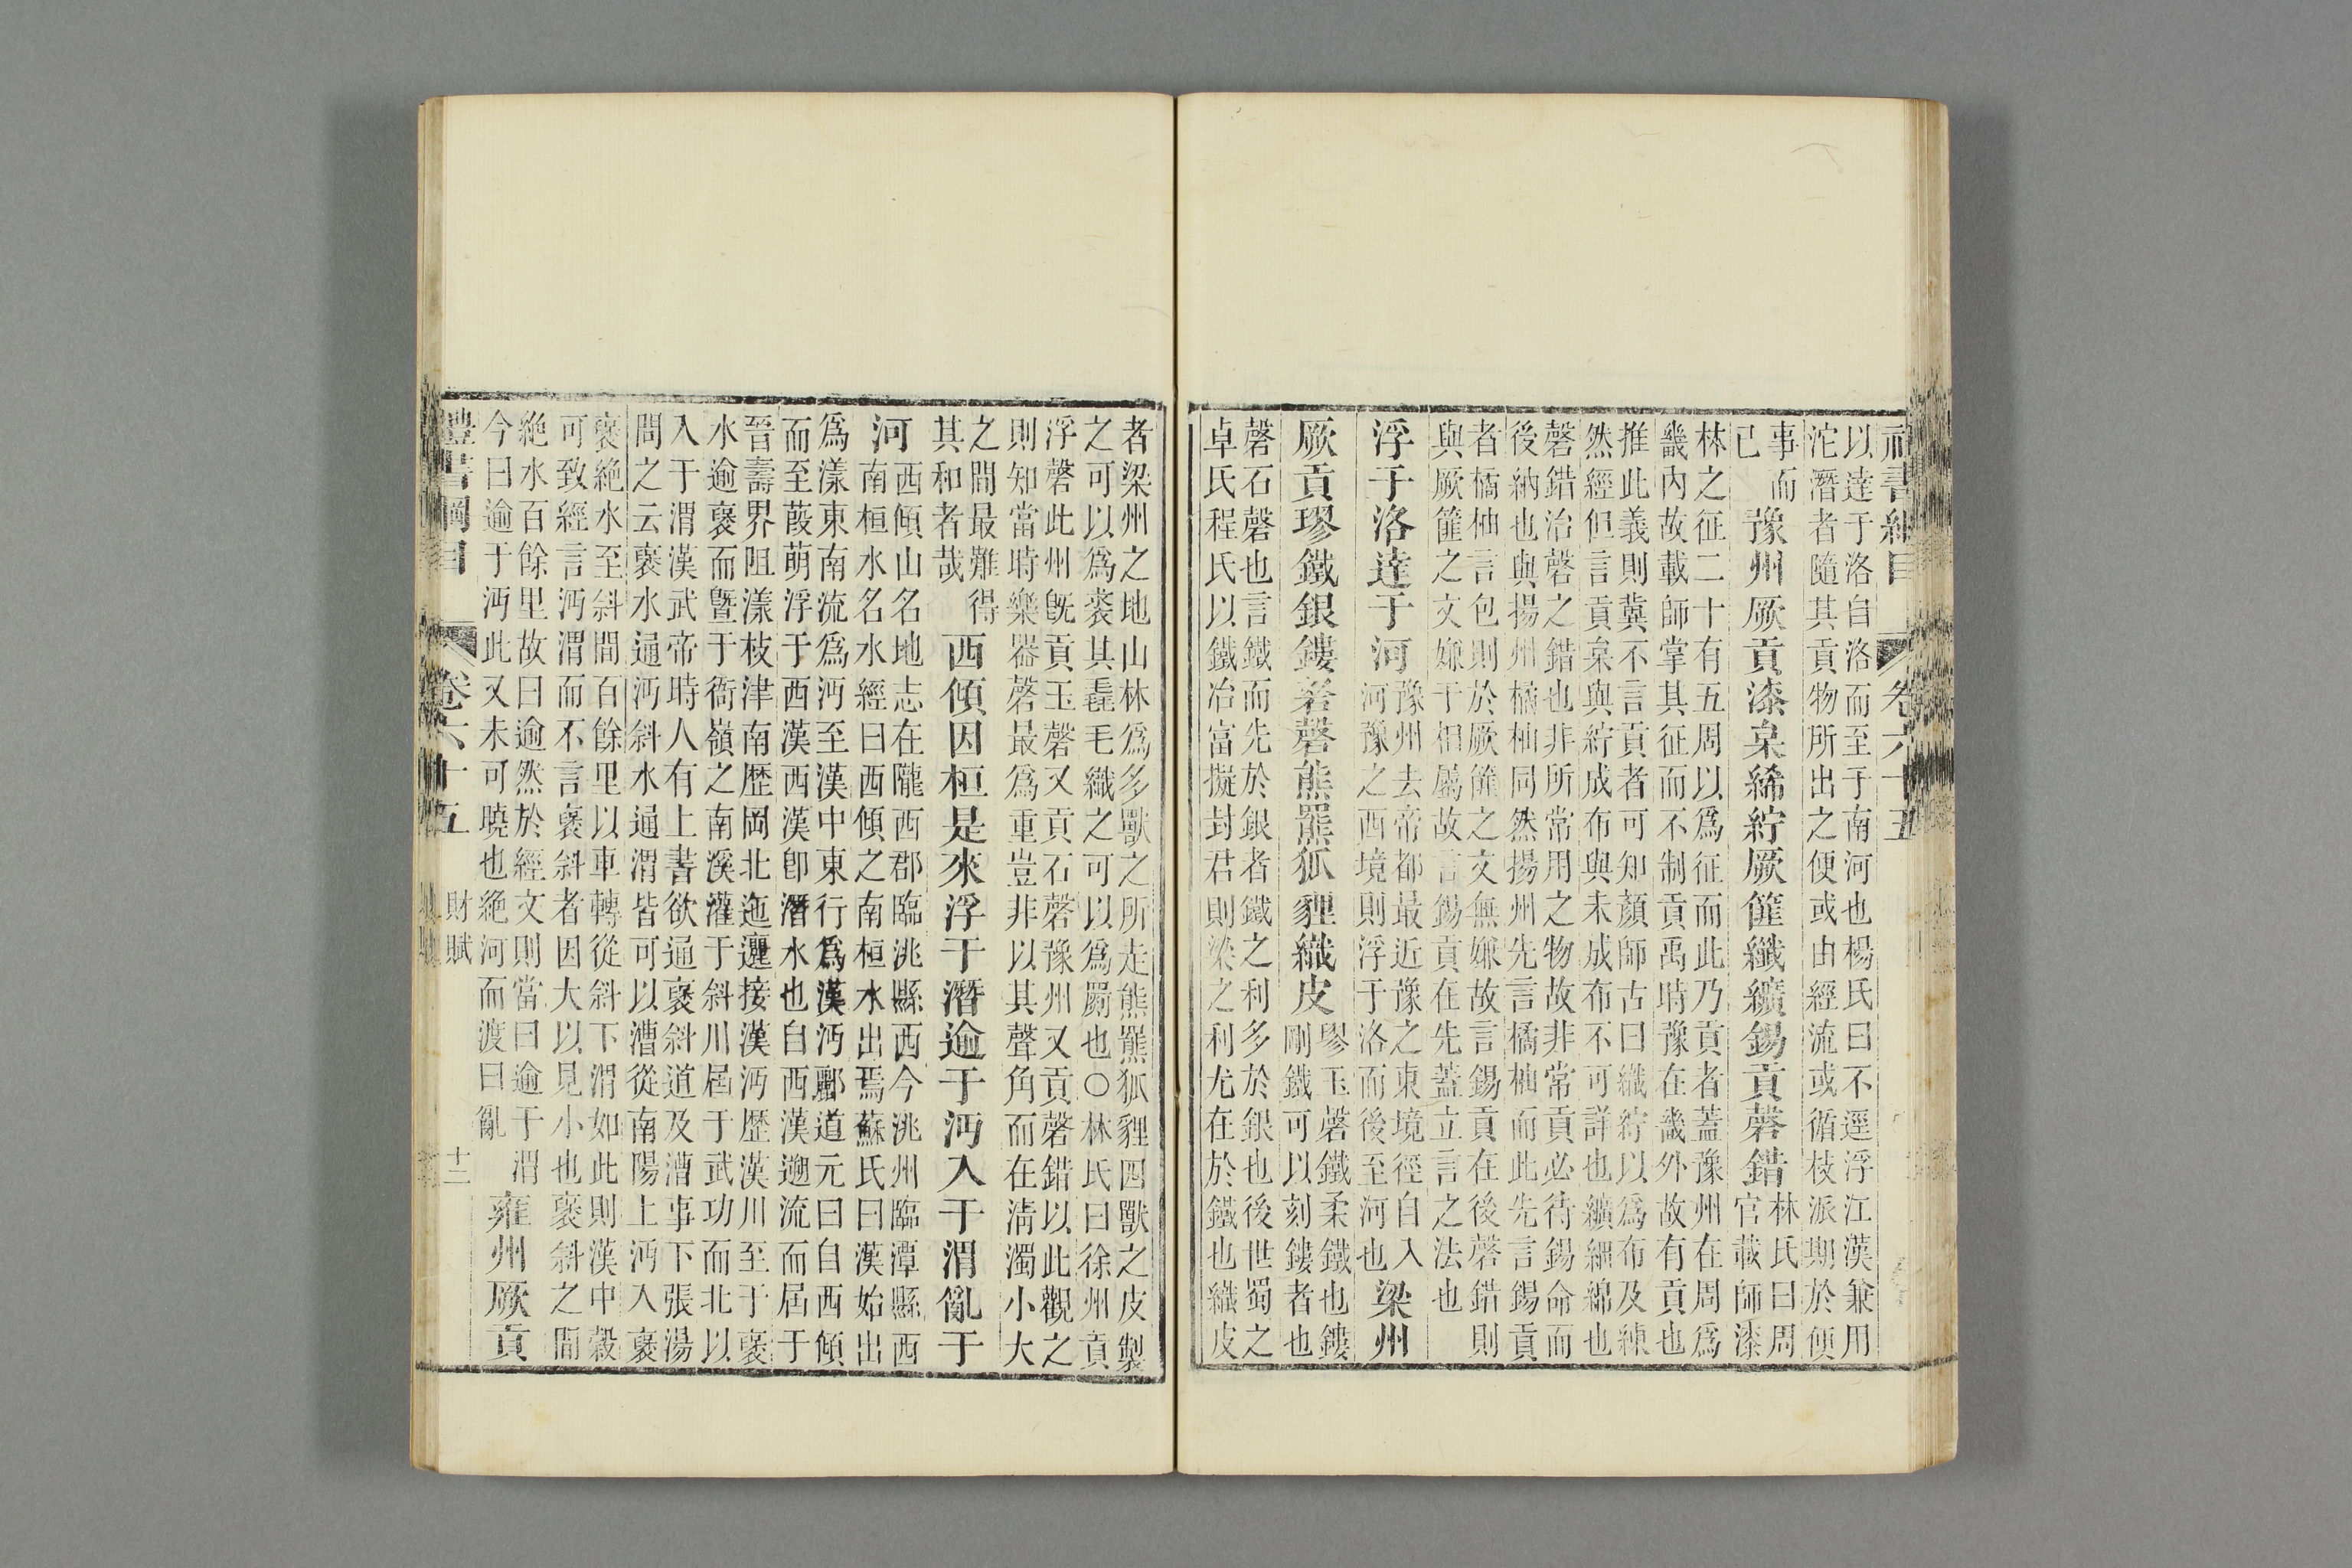 禮書綱目 卷六十五
以達于洛自洛而至于南河也楊氏曰不逕浮江漢兼用
沱潛者隨其貢物所出之便或由經流或循枝派期於便
事而
已
豫州厥貢漆枲絺紵厥篚纖纊錫貢磬錯
林氏曰周
官載師漆
林之征二十有五周以爲征而此乃貢者蓋豫州在周爲
畿內故載師掌其征而不制貢禹時豫在畿外故有貢也
推此義則冀不言貢者可知顏師古曰織紵以爲布及練
然經但言貢枲與紵成布與未成布不可詳也纊細綿也
磬錯治磬之錯也非所常用之物故非常貢必待錫命而
後納也與揚州橘柚同然揚州先言橘柚而此先言錫貢
者橘柚言包則於厥篚之文無嫌故言錫貢在後磬錯則
與厥篚之文嫌于相屬故言錫貢在先蓋立言之法也
浮于洛達于河
豫州去帝都最近豫之東境徑自入
河豫之西境則浮于洛而後至河也
梁州
厥貢璆鐵銀鏤砮磬熊羆狐貍織皮
璆玉磬鐵柔鐵也鏤
剛鐵可以刻鏤者也
磬石磬也言鐵而先於銀者鐵之利多於銀也後世蜀之
卓氏程氏以鐵冶富擬封君則梁之利尤在於鐵也織皮
者梁州之地山林爲多獸之所走熊羆狐貍四獸之皮製
之可以爲裘其毳毛織之可以爲罽也○林氏曰徐州貢
浮磬此州旣貢玉磬又貢石磬豫州又貢磬錯以此觀之
則知當時樂器磬最爲重豈非以其聲角而在淸濁小大
之間最難得
其和者哉
西傾因桓是來浮于潛逾于沔入于渭亂于
河
西傾山名地志在隴西郡臨洮縣西今洮州臨潭縣西
南桓水名水經曰西傾之南桓水出焉蘇氏曰漢始出
爲漾東南流爲沔至漢中東行爲漢沔酈道元曰自西傾
而至葭萌浮于西漢西漢卽潛水也自西漢遡流而屆于
晉壽界阻漾枝津南歷岡北迤邐接漢沔歷漢川至于褒
水逾褒而曁于衙嶺之南溪灌于斜川屆于武功而北以
入于渭漢武帝時人有上書欲通褒斜道及漕事下張湯
問之云褒水通沔斜水通渭皆可以漕從南陽上沔入褒
褒絶水至斜間百餘里以車轉從斜下渭如此則漢中穀
可致經言沔渭而不言褒斜者因大以見小也褒斜之間
絶水百餘里故曰逾然於經文則當曰逾于渭
今曰逾于沔此又未可曉也絶河而渡曰亂
雍州厥貢
禮書綱目 卷六十五 財賦 十二